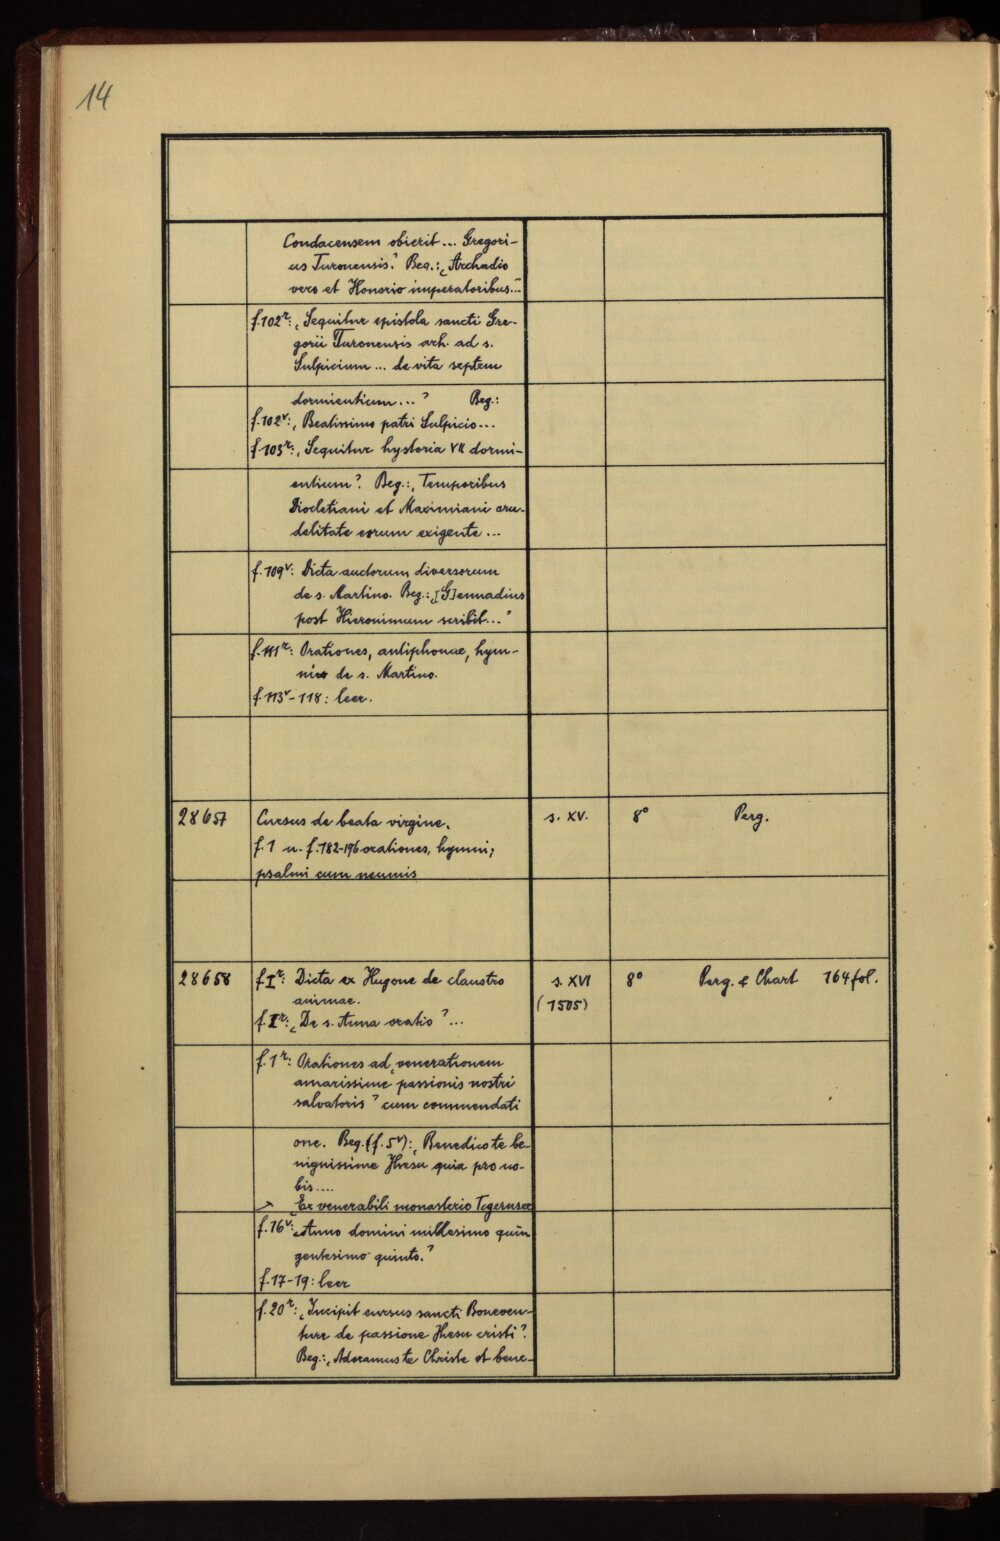 14
Condacensem obierit ... Gregori-
us Turonensis.' Beg.: ‚Archadio
vero et Honorio imperatoribus...'
f.102r: ‚Sequitur epistola sancti Gre-
gorii Turonensis arch. ad s.
Sulpicium ... de vita septem
dormientium ...' Beg.:
f.102v: ‚Beatissimo patri Sulpicio...
f.103r: ‚Sequitur hystoria VII dormi-
entium'. Beg.: ‚Temporibus
Diocletiani et Maximiani cru-
delitate eorum exigente ...
f.109v: Dicta auctorum diversorum
de s. Martino. Beg.: ‚[G]ennadius
post Hieronimum scribit...'
f.111r: Orationes, antiphonae, hym-
ni de s. Martino.
f.113v-118: leer.
28657 Cursus de beata virgine. s. XV. 8° Perg.
f.1 u. f.182-196 orationes, hymni,
psalmi cum neumis
28658 f.Ir: Dicta ex Hugone de claustro s. XVI 8° Perg. & Chart 164 fol.
animae. (1505)
f.Ir: ‚De s. Anna oratio' ...
f.1r: Orationes ad ‚venerationem
amarissime passionis nostri
salvatoris' cum commendati
one. Beg. (f.5v): ‚Benedico te be-
nignissime Jhesu quia pro no-
bis....
→ ‚Ex venerabili monasterio Tegernsee
f.16v: ‚Anno domini millesimo quin
gentesimo quinto.'
f.17-19: leer
f.20r: ‚Incipit cursus sancti Boneven-
ture de passione Jhesu cristi'.
Beg.: ‚Adoramus te Christe et bene-